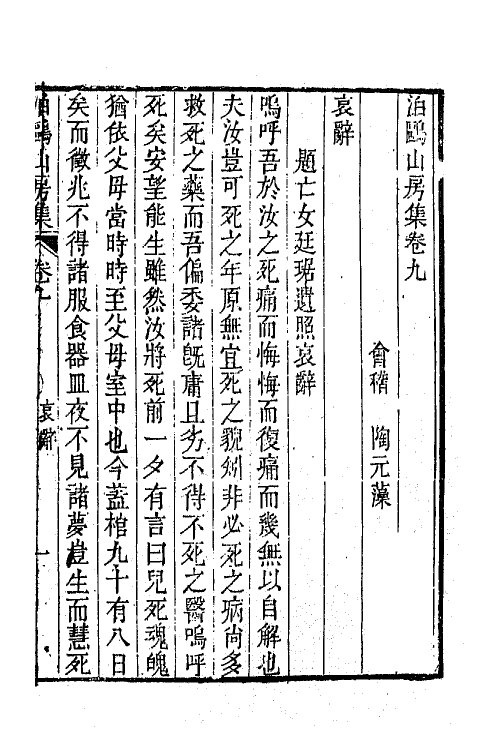 泊鷗山房集卷九
會稽　陶元藻
哀辭
題亡女廷琚遺照哀辭
嗚呼吾於汝之死痛而悔悔而復痛而幾無以自解也
夫汝豈可死之年原無宜死之貌矧非必死之病尚多
救死之藥而吾偏委諸旣庸且劣不得不死之醫嗚呼
死矣安望能生雖然汝將死前一夕有言曰兒死魂魄
猶依父母當時時至父母室中也今蓋棺九十有八日
矣而徵兆不得諸服食器皿夜不見諸夢豈生而慧死
泊鷗山房集　卷九　哀辭　一